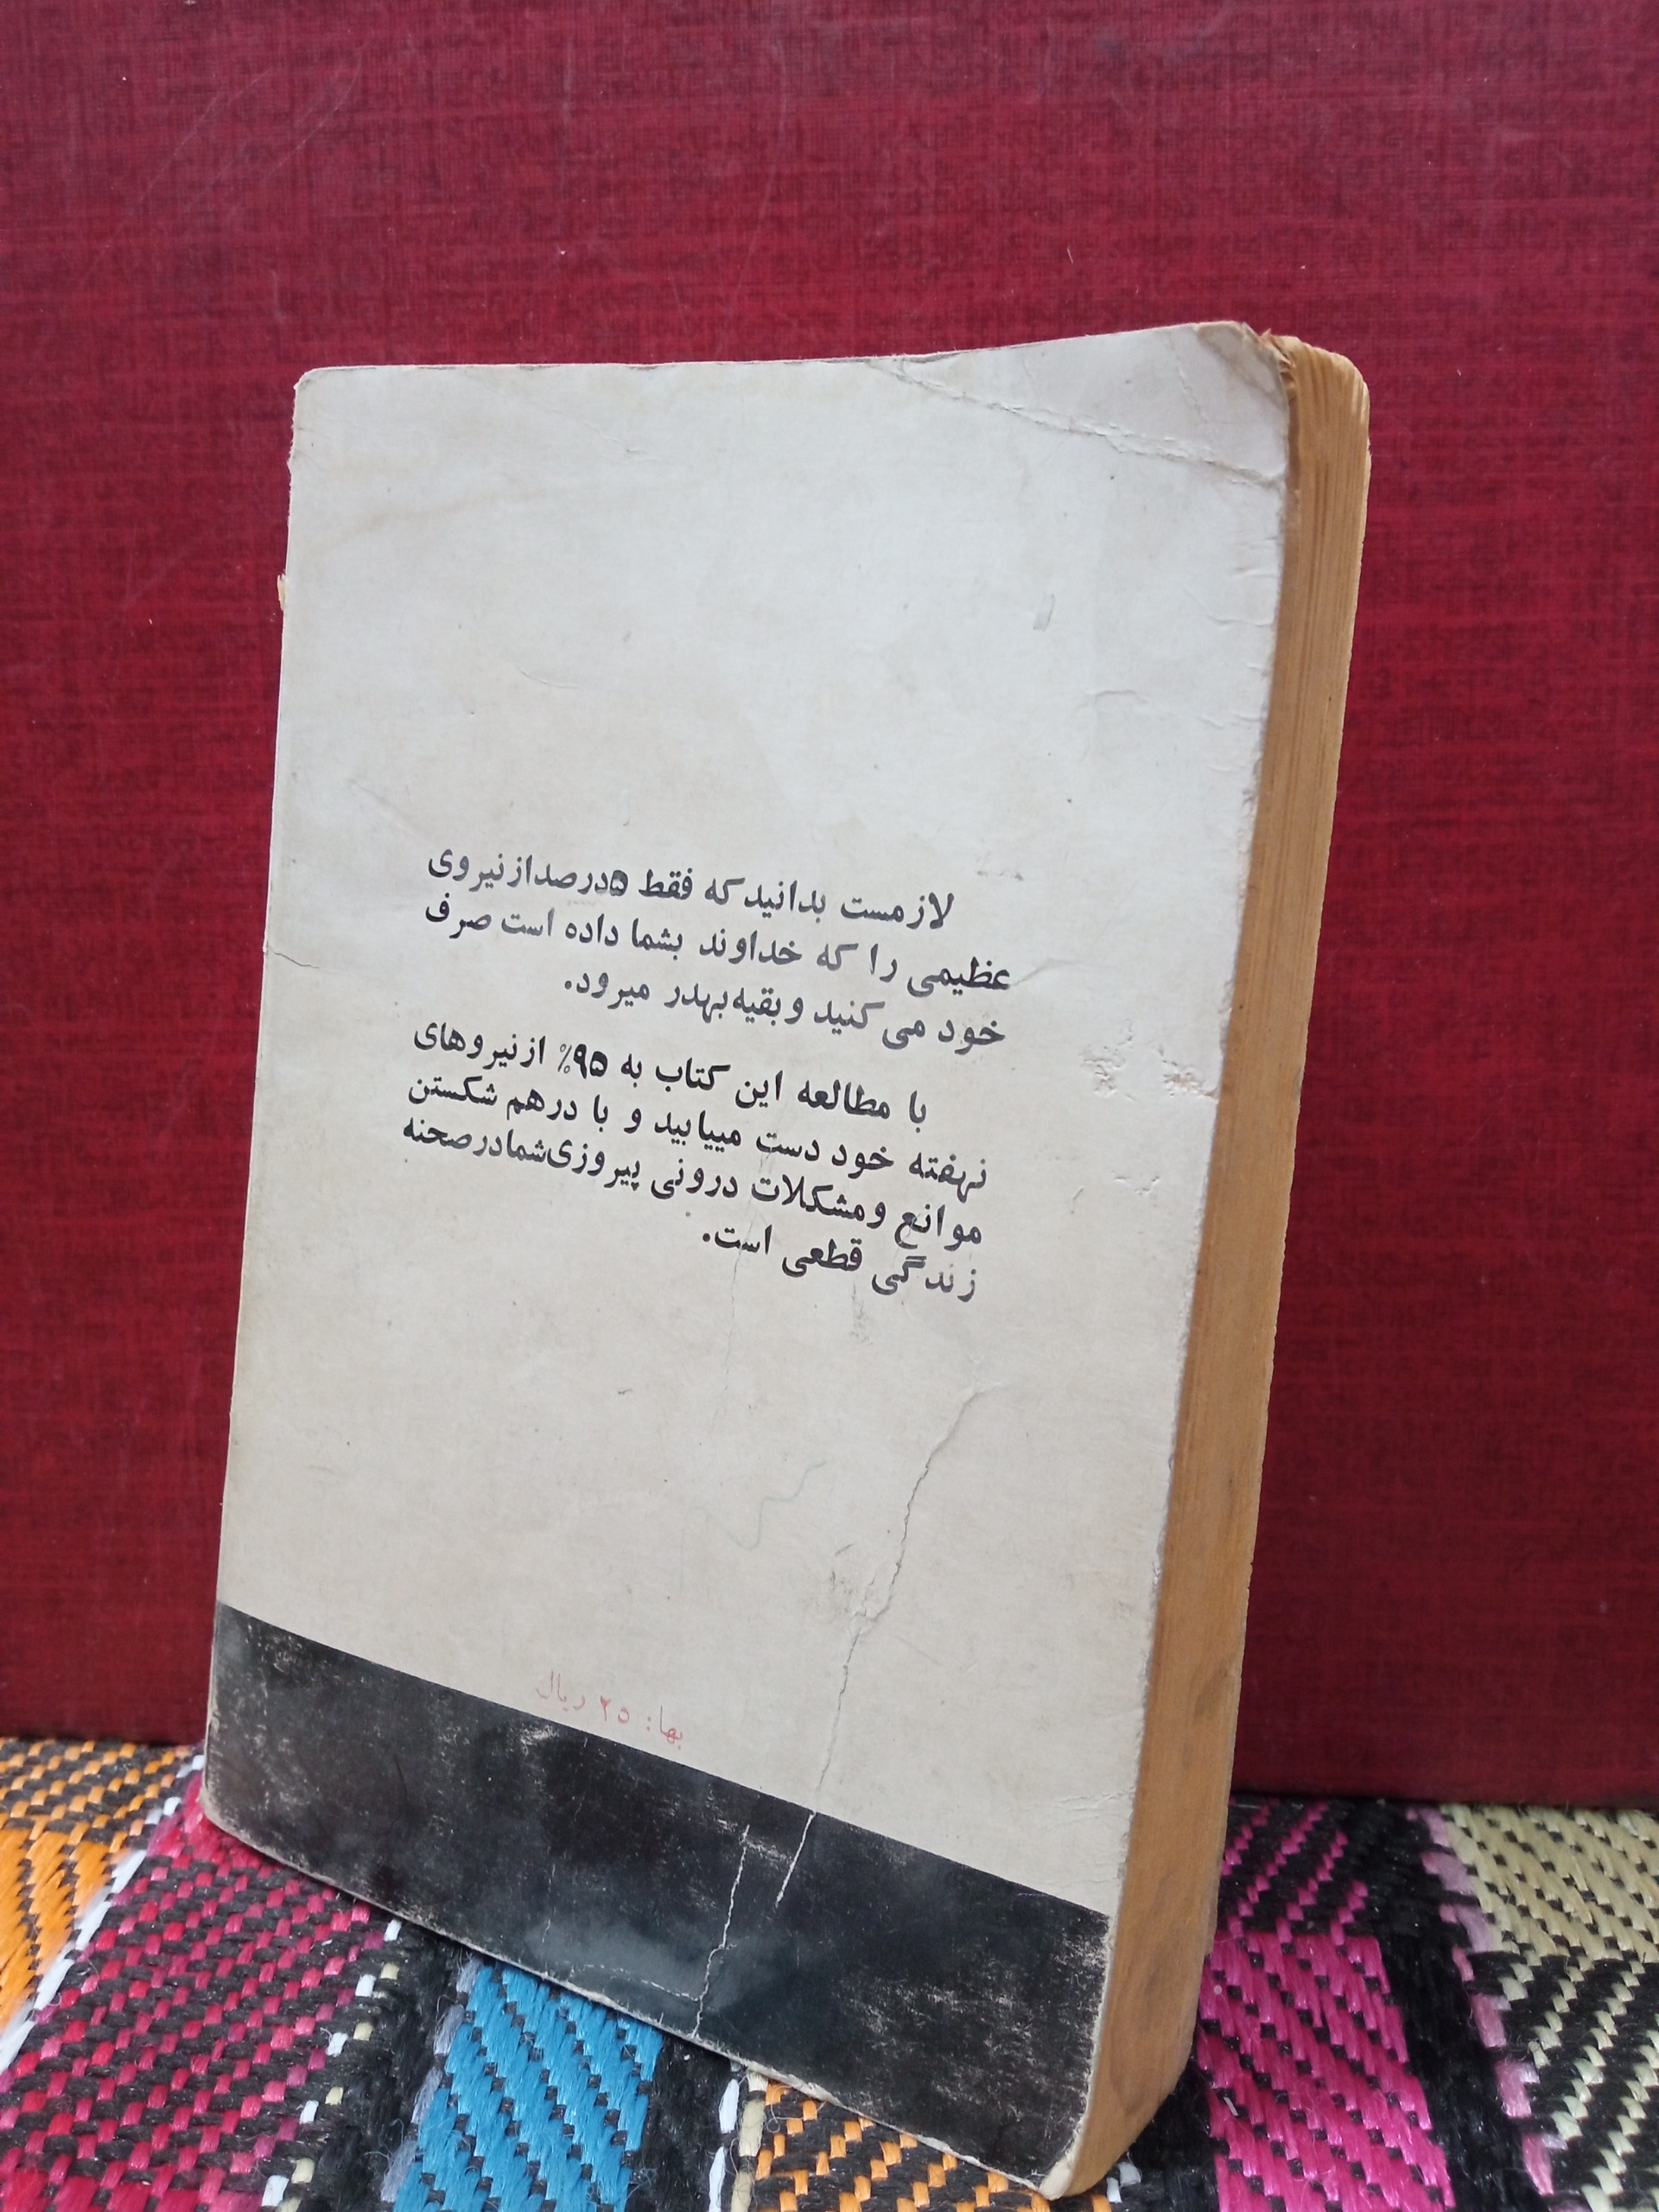 لازمست بدانید که فقط ۵درصداز نیروی
عظیمی را که خداوند بشما داده است صرف
خود می کنید و بقیه بهدر میرود.
با مطالعه این کتاب به ۹۵% از نیروهای
نهفته خود دست مییابید و با درهم شکستن
موانع و مشکلات درونی پیروزی شما در صحنه
زندگی قطعی است.
بها: ۲۵ ریال